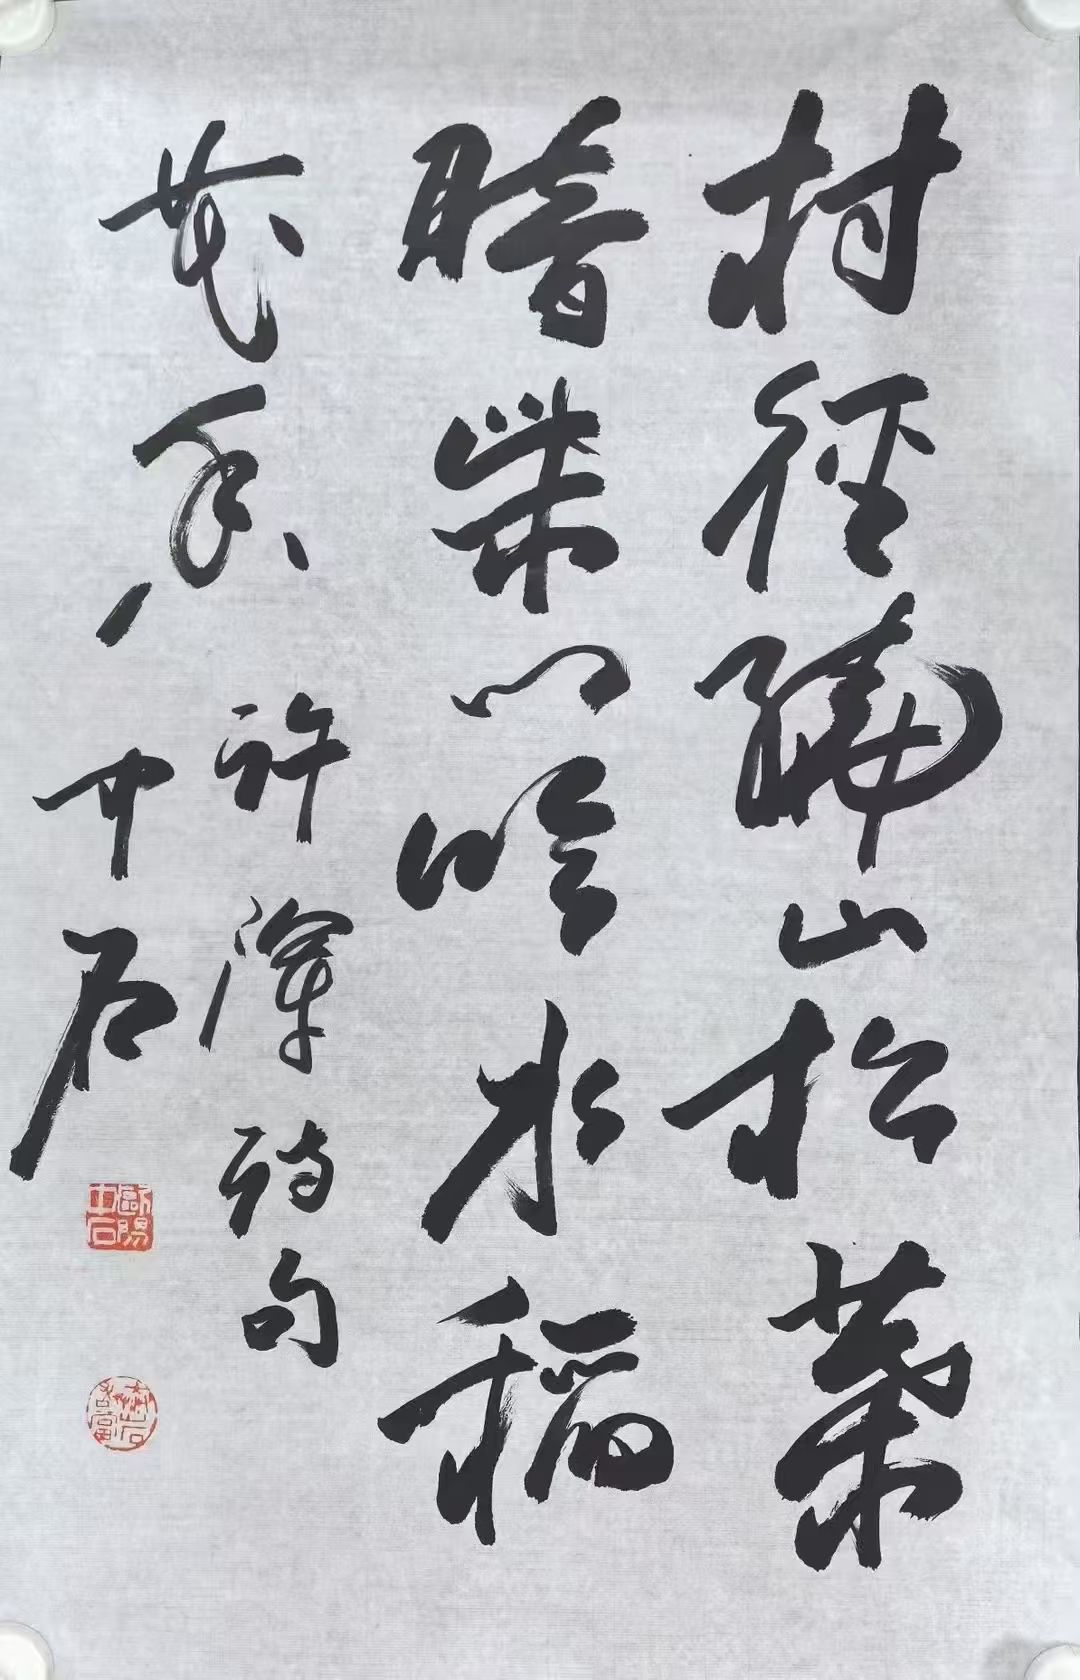 村徑繞山松葉
暗柴門臨水稻
花香
許渾詩句
中石
歐陽中石